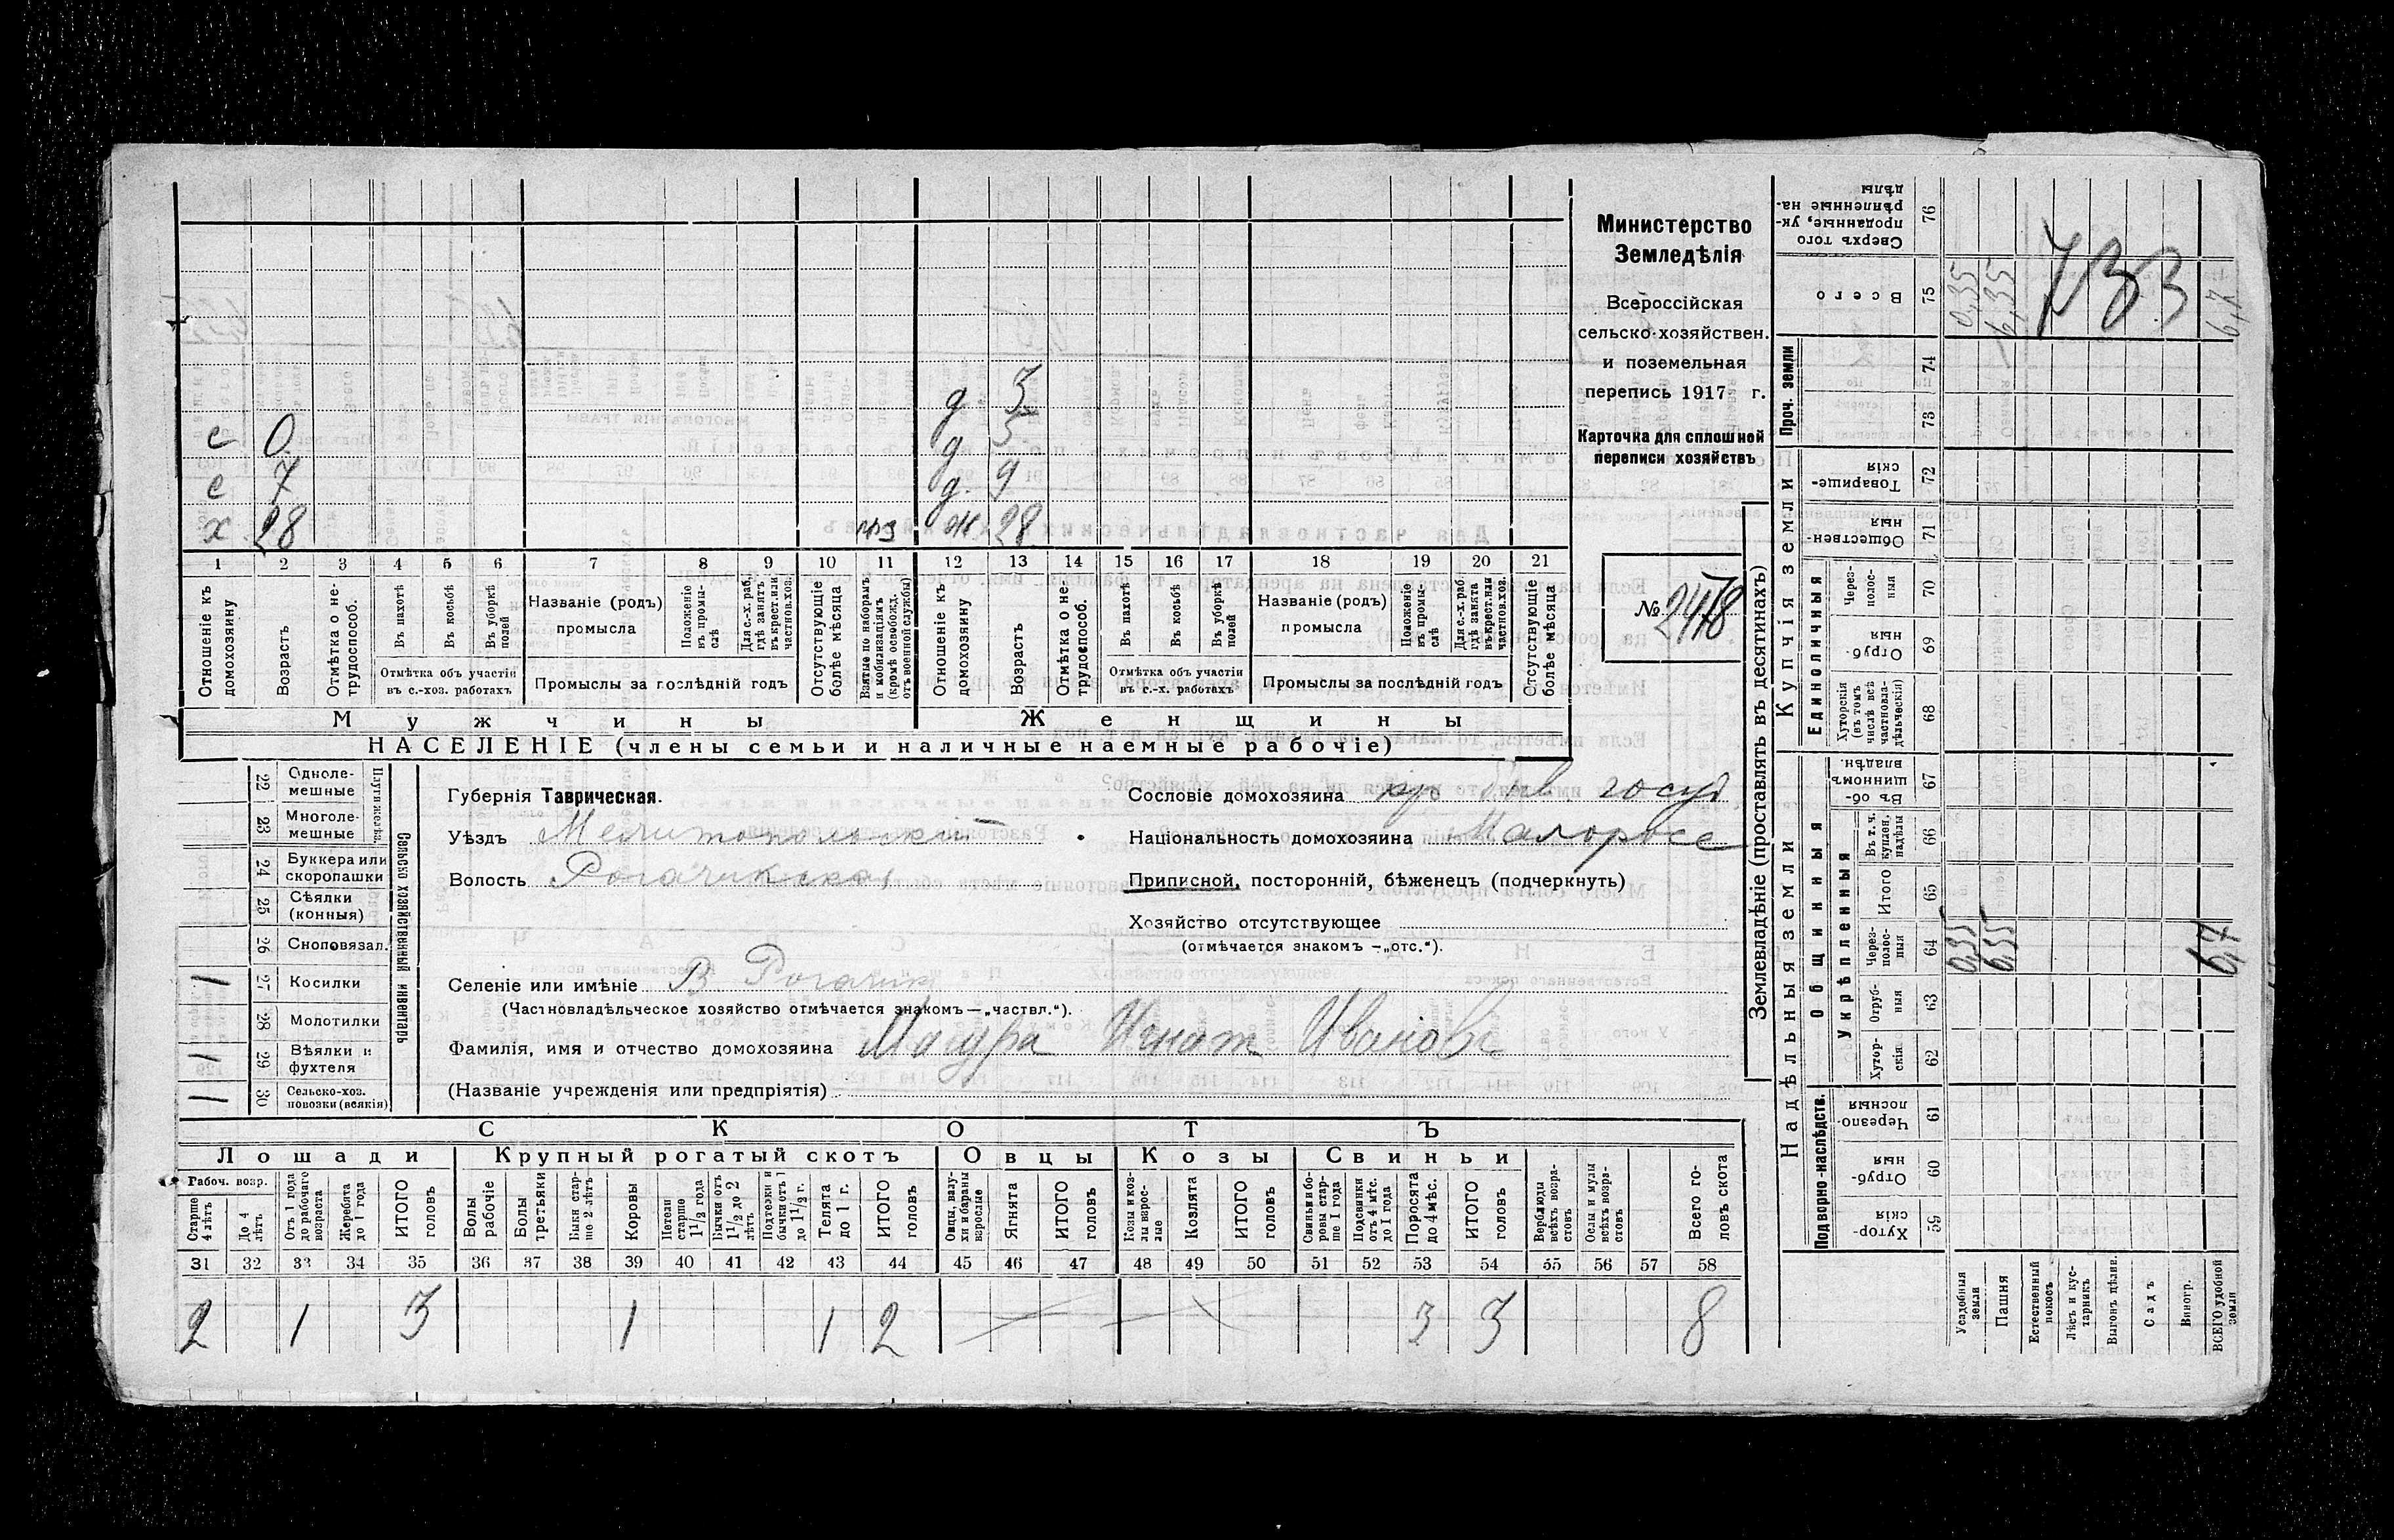 Министерство
Земледѣлія
Всероссійская
сельско-хозяйствен.
и поземельная
перепись 1917 г.
Карточка для сплошной
переписи хозяйствъ
№ 2478
д 3
с 0 д 5
с 7 д. 9
х 28 ж 28
1 2 3 4 5 6 7 8 9 10 11 12 13 14 15 16 17 18 19 20 21
Отношеніе къ домохозяину
Возрастъ
Отмѣтка о не-трудоспособ.
Въ пахотѣ
Въ косьбѣ
Въ уборкѣ полей
Отмѣтка объ участіи въ с.-хоз. работахъ
Названіе (родъ) промысла
Положеніе въ промы-слѣ
Для с.-х. раб., гдѣ занятъ въ крест. или частнов. хоз.
Промыслы за послѣдній годъ
Отсутствующіе болѣе мѣсяца
Взятые по наборамъ и мобилизаціямъ (кромѣ освобожд. отъ военной службы)
Отношеніе къ домохозяину
Возрастъ
Отмѣтка о не-трудоспособ.
Въ пахотѣ
Въ косьбѣ
Въ уборкѣ полей
Отмѣтка объ участіи въ с.-х. работахъ
Названіе (родъ) промысла
Положеніе въ промы-слѣ
Для с.-х. раб. гдѣ занята въ крест. или частнов. хоз.
Промыслы за послѣдній годъ
Отсутствующіе болѣе мѣсяца
Мужчины Женщины
НАСЕЛЕНІЕ (члены семьи и наличные наемные рабочіе)
Сельско хозяйственный инвентарь
Плуги желѣз.
22 Одноле-мешные
23 Многоле-мешные
24 Буккера или скоропашки
25 Сѣялки (конныя)
26 Сноповязал.
1 27 Косилки
28 Молотилки
1 29 Вѣялки и фухтеля
1 30 Сельско-хоз. повозки (всякія)
Губернія Таврическая.
Уѣздъ Мелитопольскій
Волость Рогачикская
Селеніе или имѣніе В Рогачик
(Частновладѣльческое хозяйство отмѣчается знакомъ—„частвл.“).
Фамилія, имя и отчество домохозяина Мазура Игнат Иванов
(Названіе учрежденія или предпріятія)
Сословіе домохозяина кр быв госуд
Національность домохозяина Малоросс
Приписной, посторонній, бѣженецъ (подчеркнуть)
Хозяйство отсутствующее
(отмѣчается знакомъ —„отс.“).
СКОТЪ
Лошади Крупный рогатый скотъ Овцы Козы Свиньи
Рабоч. возр.
Старше 4 лѣтъ
До 4 лѣтъ
Отъ 1 года до рабочаго возраста
Жеребята до 1 года
ИТОГО головъ
Волы рабочіе
Волы третьяки
Быки стар-ше 2 лѣтъ
Коровы
Нетели старше 1 1/2 года
Бычки отъ 1 1/2 до 2 лѣтъ
Подтелки и бычки отъ 1 до 1 1/2 г.
Телята до 1 г.
ИТОГО головъ
Овцы, валу-хи и бараны взрослые
Ягнята
ИТОГО головъ
Козы и коз-лы взрос-лые
Козлята
ИТОГО головъ
Свиньи и бо-ровы стар-ше 1 года
Подсвинки отъ 4 мѣс. до 1 года
Поросята до 4 мѣс.
ИТОГО головъ
Верблюды всѣхъ возра-стовъ
Ослы и мулы всѣхъ возра-стовъ
Всего го-ловъ скота
31 32 33 34 35 36 37 38 39 40 41 42 43 44 45 46 47 48 49 50 51 52 53 54 55 56 57 58
2 1 3 1 1 2 3 3 8
Землевладѣніе (проставлять въ десятинахъ)
Надѣльныя земли Купчія земли Проч. земли
Подворно-наслѣдств.
Общинныя
Укрѣпленныя
Единоличныя
Сверхъ того проданные, ук-рѣпленные на-дѣлы 76
Всего 75 0,35 6,35 6,7
733
74
73
Товарище-скія 72
Обществен-ныя 71
Через-полос-ныя 70
Отруб-ныя 69
Хуторскія (въ томъ числѣ всѣ частновла-дѣльческія) 68
Въ об-щинномъ владѣн. 67
Въ т. ч. куплен. надѣлы 66
Итого 65
Через-полос-ныя 64 0,35 6,35 6,7
Отруб-ныя 63
Хутор-скія 62
Черезпо-лосныя 61
Отруб-ныя 60
Хутор-скія 59
Усадебныя земли
Пашня
Естественный покосъ
Лѣсъ и кус-тарникъ
Выгонъ цѣлин.
Садъ
Виногр.
ВСЕГО удобной земли